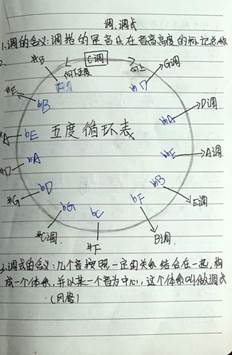 调.调式
1.调的含义:调指的是音乐在音高高度的标记名称
2.
C调
G调
D调
bA
bE
A调
bE
bB
E调
bD
bF
#G
bG
bC
B调
#C调
#F
五度循环表
3.调式的含义:几个音按照一定的关系结合在一起,构
成一个体系,并以某一个音为中心,这个体系叫做调式
(风格)